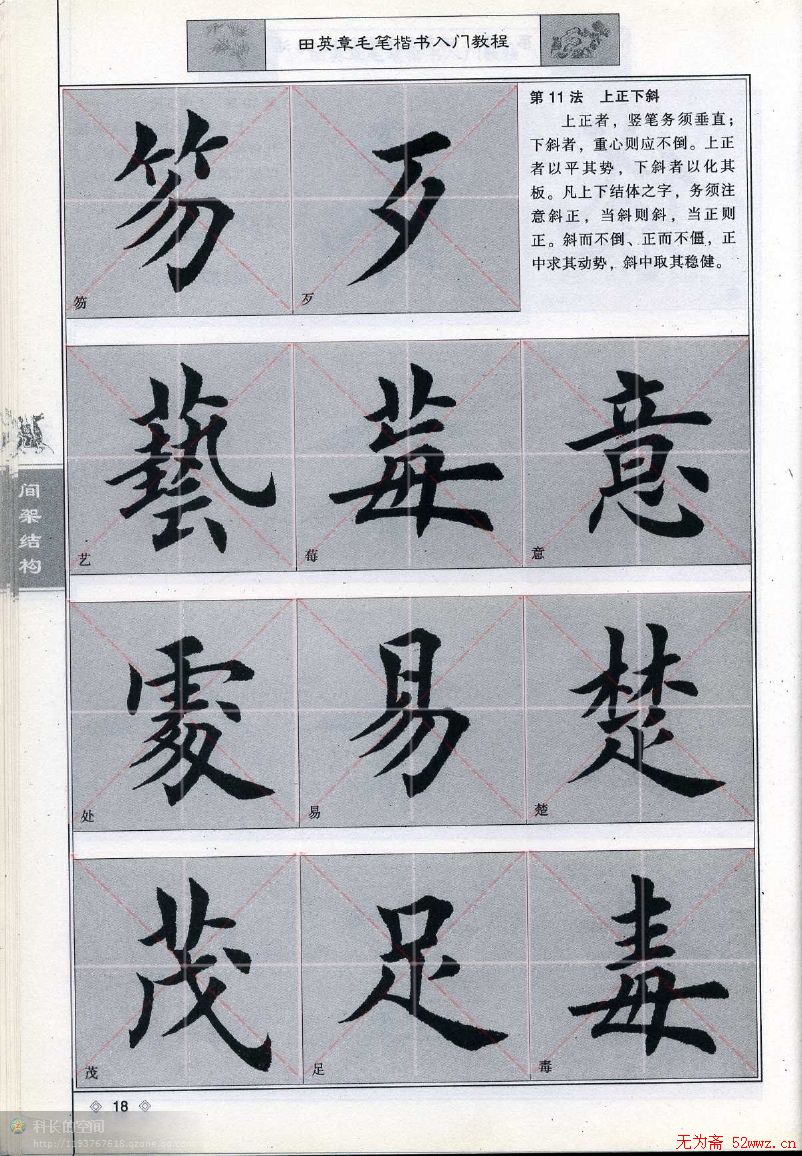 田英章毛笔楷书入门教程
第11法 上正下斜
上正者，竖笔务须垂直；
下斜者，重心则应不倒。上正
者以平其势，下斜者以化其
板。凡上下结体之字，务须注
意斜正，当斜则斜，当正则
正。斜而不倒、正而不僵，正
中求其动势，斜中取其稳健。
笏 歹
笏 歹
藝 莓 意
艺 莓 意
間架结构
處 易 楚
处 易 楚
茂 足 毒
茂 足 毒
18
科长的空间
http://1193767618.qzone.qq.com
无为斋 52wwz.cn